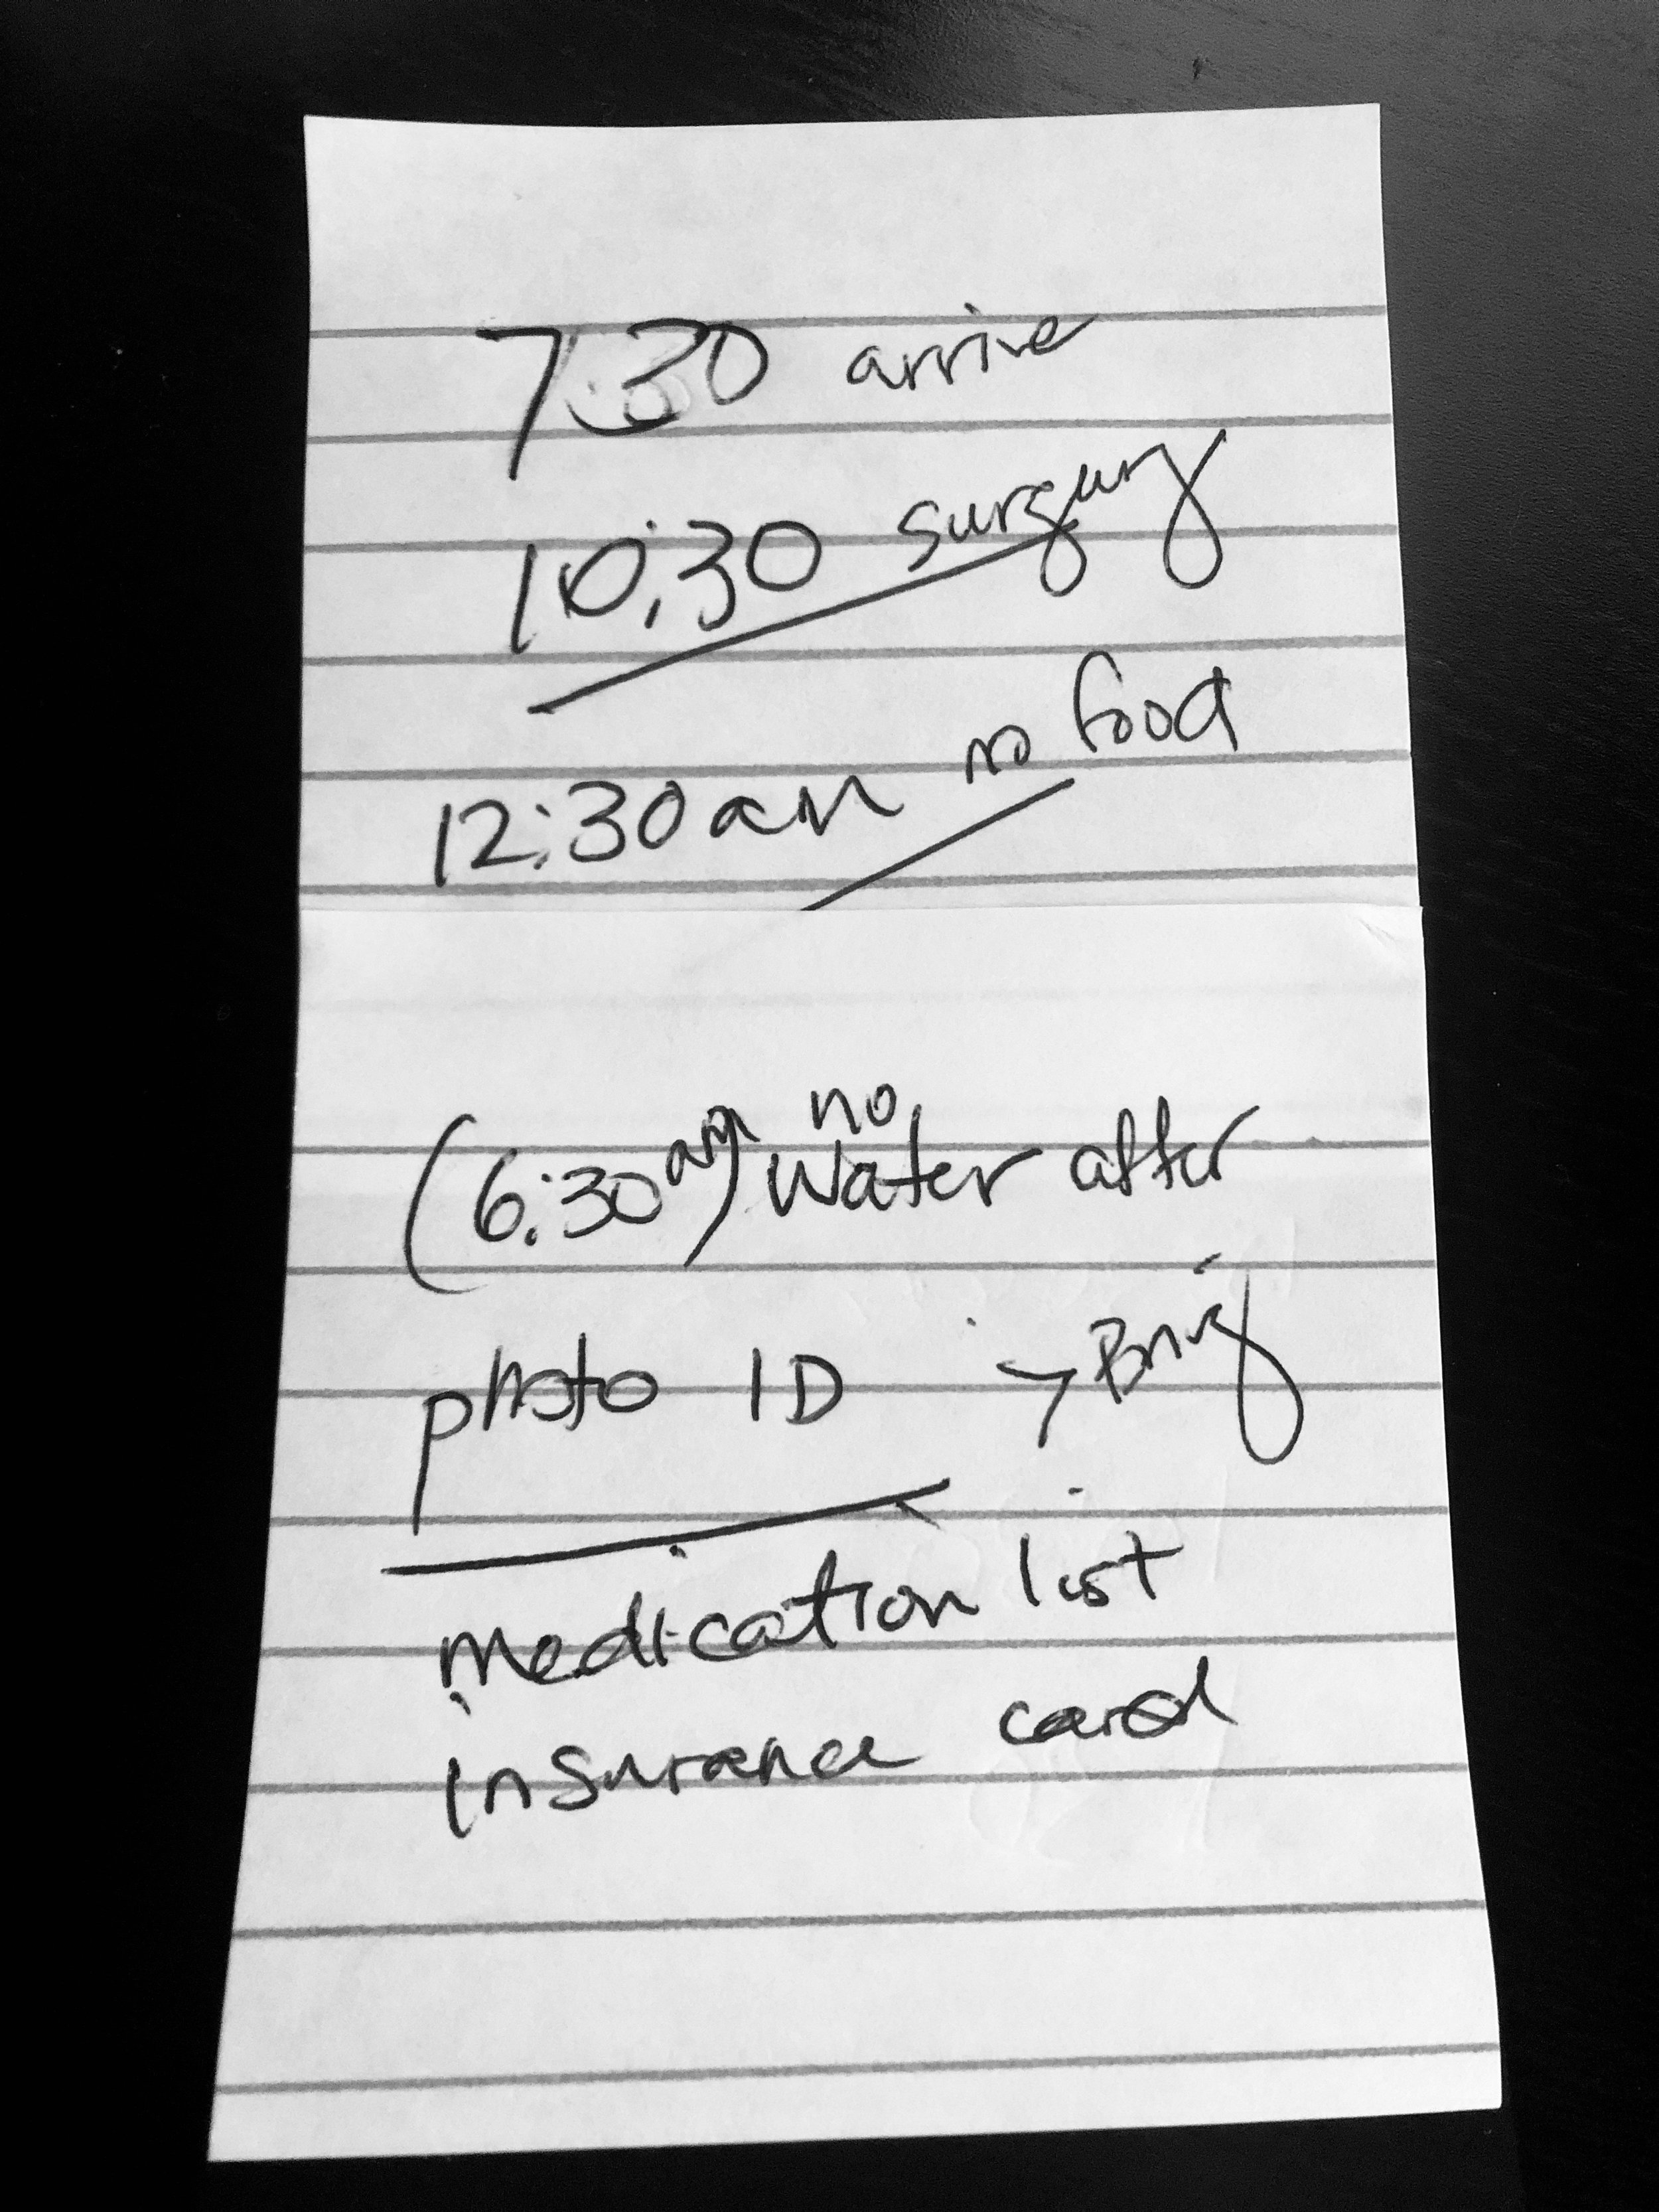 7:30 arrive
10:30 surgury
12:30am no food
no
(6:30am) water after
photo ID > Bring
medication list
insurance card